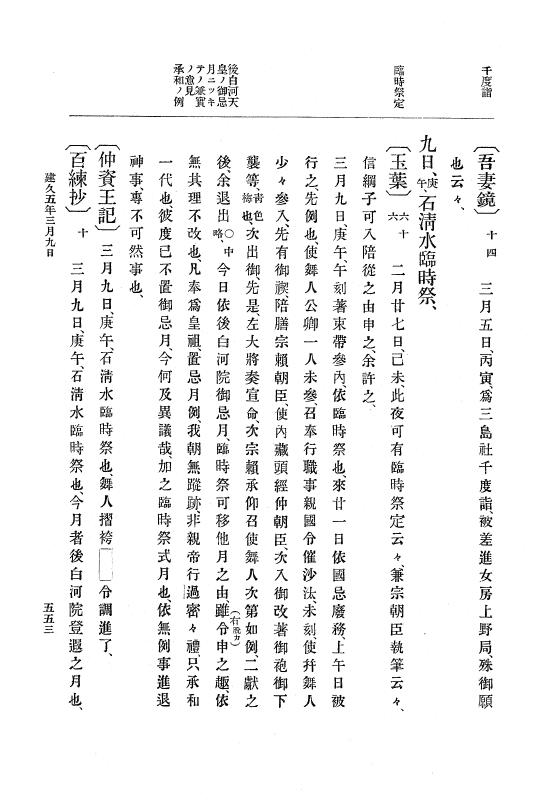 千度詣
臨時祭定
後白河天
皇ノ御忌
月ニツキ
テノ兼實
ノ意見
承和ノ例
〔吾妻鏡〕 十四 三月五日、丙寅、爲三島社千度詣、被差進女房上野局、殊御願
也云々、
九日、庚午、石清水臨時祭、
〔玉葉〕 六十六 二月廿七日、己未、此夜可有臨時祭定云々、兼宗朝臣執筆云々、
信綱子可入陪從之由申之、余許之、
三月九日、庚午、午刻著束帶參內、依臨時祭也、來廿一日依國忌廢務、上午日被
行之、先例也、使舞人公卿一人未參、召奉行職事親國令催沙汰、未刻、使幷舞人
少々參入、先有御禊、陪膳宗賴朝臣、使內藏頭經仲朝臣、次入御改著御袍御下
襲等、靑色袍也、次出御、先是、左大將奏宣命、次宗賴承仰召使舞人、次第如例、二獻之
後、余退出、○中略、今日依後白河院御忌月、臨時祭可移他月之由雖令申之趣、依
(右脫カ)
無其理不改也、凡奉爲皇祖、置忌月例、我朝無蹤跡、非親帝行過密々禮、只承和
一代也、彼度已不置御忌月、今何及異議哉、加之臨時祭式月也、依無例事進退
神事、專不可然事也、
〔仲資王記〕 三月九日、庚午、石清水臨時祭也、舞人摺袴 令調進了、
〔百練抄〕 十 三月九日、庚午、石清水臨時祭也、今月者後白河院登遐之月也、
建久五年三月九日
五五三